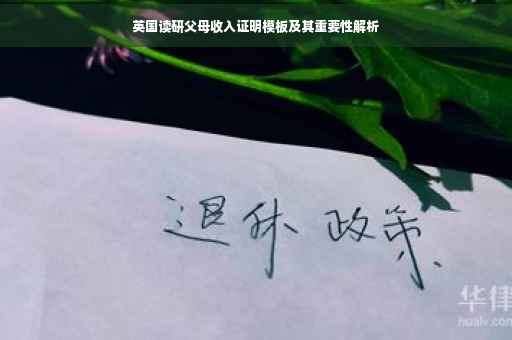 英国读研父母收入证明模板及其重要性解析
退休 政策
华律
hualv.com